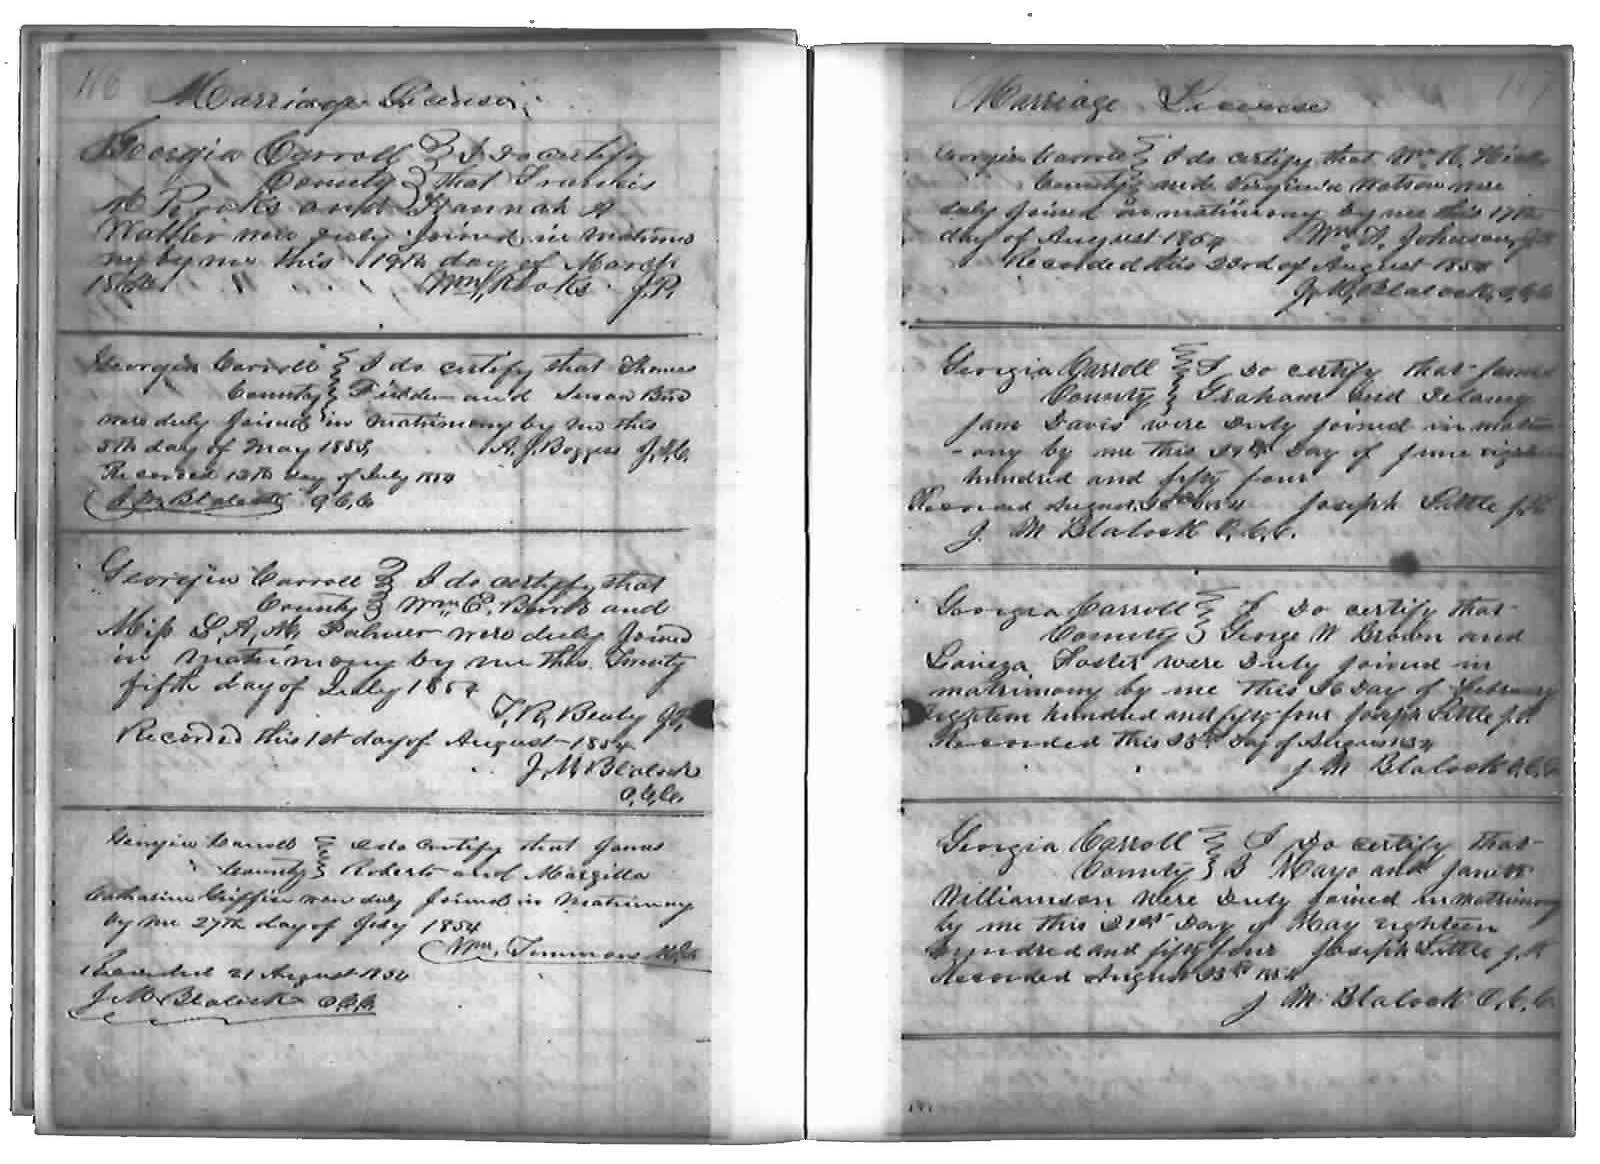 116
Marriage License
Georgia Carroll } I do certify
County } that Francis
M Rooks and Hannah A
were duly joined in matrimo
ny by me this 19th day of March
Wm Rooks J.P.
Georgia Carroll } I do certify that Thomas
County } and Susan
were duly joined in matrimony by me this
5th day of May 1853, A. J. Boggess J.I.C.
Recorded 13th day of July 1854
J. M. Blalock C.C.O.
Georgia Carroll } I do certify that
County } Wm. and
Miss S. A. M. Palmer were duly joined
in matrimony by me this Twenty
fifth day of July 1854
T. R. Beaty J.P.
Recorded this 1st day of August 1854
J. M. Blalock
C.C.O.
Georgia Carroll } I do certify that James
County } Roberts and
Catharine Griffin were duly joined in matrimony
by me 27th day of July 1854
Wm. Timmons
Recorded 21 August 1854
J. M. Blalock C.C.O.
117
Marriage License
Georgia Carroll } I do certify that Wm.
County } and Virginia Watson were
duly joined in matrimony by me this 17th
day of August 1854 Johnson J.P.
Recorded this 23rd of August 1854
J. M. Blalock, C.C.O.
Georgia Carroll } I Do certify that James
County } Graham and Delaney
Jane Davis were Duly joined in matrim
-ony by me this Day of June eighteen
hundred and fifty four
Recorded August 1854 Joseph Little J.P.
J. M Blalock C.C.O.
Georgia Carroll } I Do certify that
County } George W Brown and
Foster were Duly joined in
matrimony by me this 26 Day of February
eighteen hundred and fifty four Joseph Little J.P.
Recorded this Day of August 1854
J M Blalock C.C.O.
Georgia Carroll } I Do certify that
County } B Mayo and
Williamson were Duly joined in matrimony
by me this 21st Day of May eighteen
hundred and fifty four Joseph Little J.P.
Recorded August 1854
J M. Blalock C.C.O.